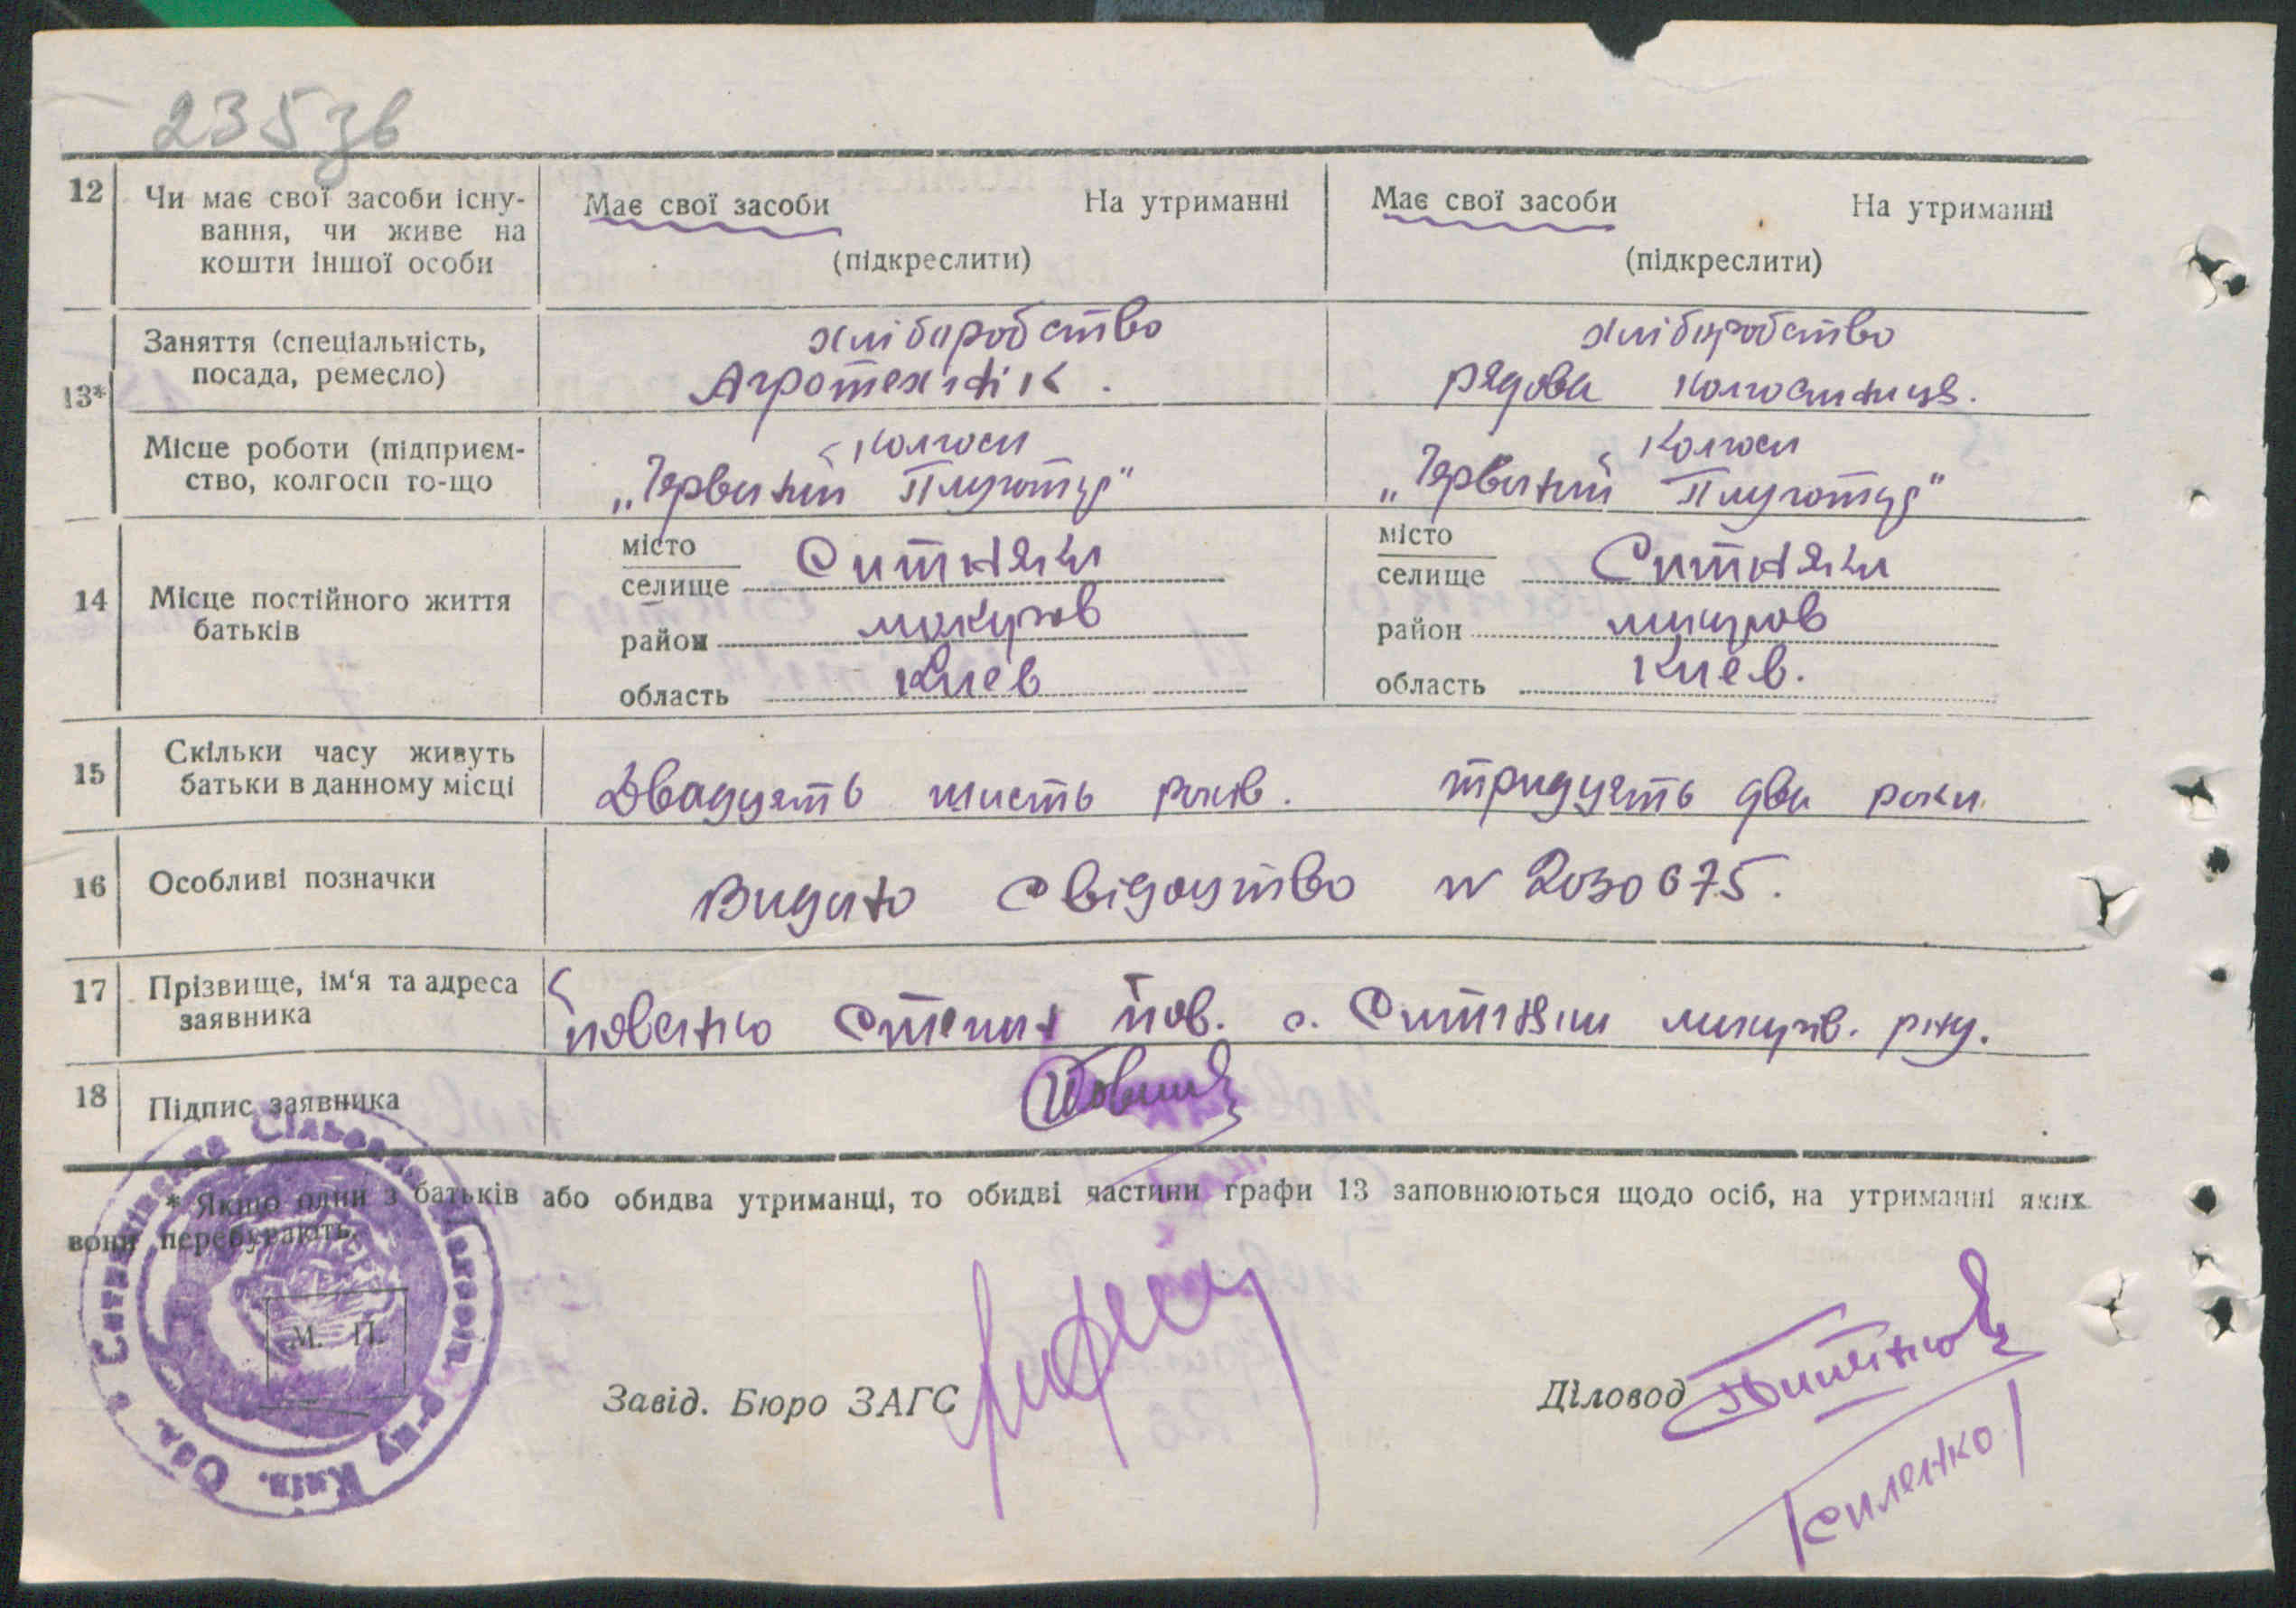 235зв
12 Чи має свої засоби існу-
вання, чи живе на
кошти іншої особи
Має свої засоби На утриманні
(підкреслити)
Має свої засоби На утриманні
(підкреслити)
13*
Заняття (спеціальність,
посада, ремесло)
хліборобство
Агротехнік.
хліборобство
рядова колгоспниця.
Місце роботи (підприєм-
ство, колгосп то-що
Колгосп
„Червоний Плугатар"
Колгосп
„Червоний Плугатар"
14 Місце постійного життя
батьків
місто
селище Ситняки
район макуров
область Киев
місто
селище Ситняки
район макуров
область Киев.
15 Скільки часу живуть
батьки в данному місці
Двадцять шисть років. тридцять два роки
16 Особливі позначки
Видано свідоцтво N 2030675.
17 Прізвище, ім'я та адреса
заявника
Степан Йов. с. Ситняки макурів. р-ну.
18 Підпис заявника
* Якщо один з батьків або обидва утриманці, то обидві частини графи 13 заповнюються щодо осіб, на утриманні яких
вони перебувають.
М. П.
Завід. Бюро ЗАГС
Діловод